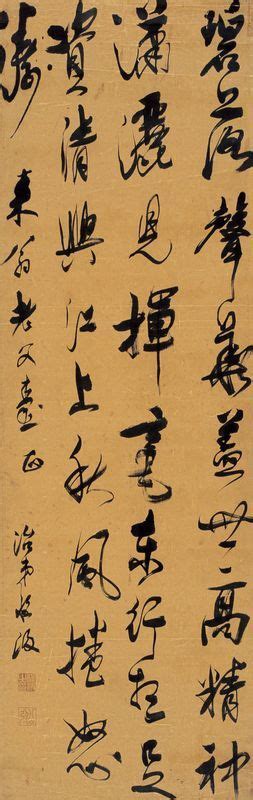 碧落聲華蓋世高精神
瀟灑見揮毫東行足
費清興江上秋風捲怒
濤
来翁老父臺正
治弟